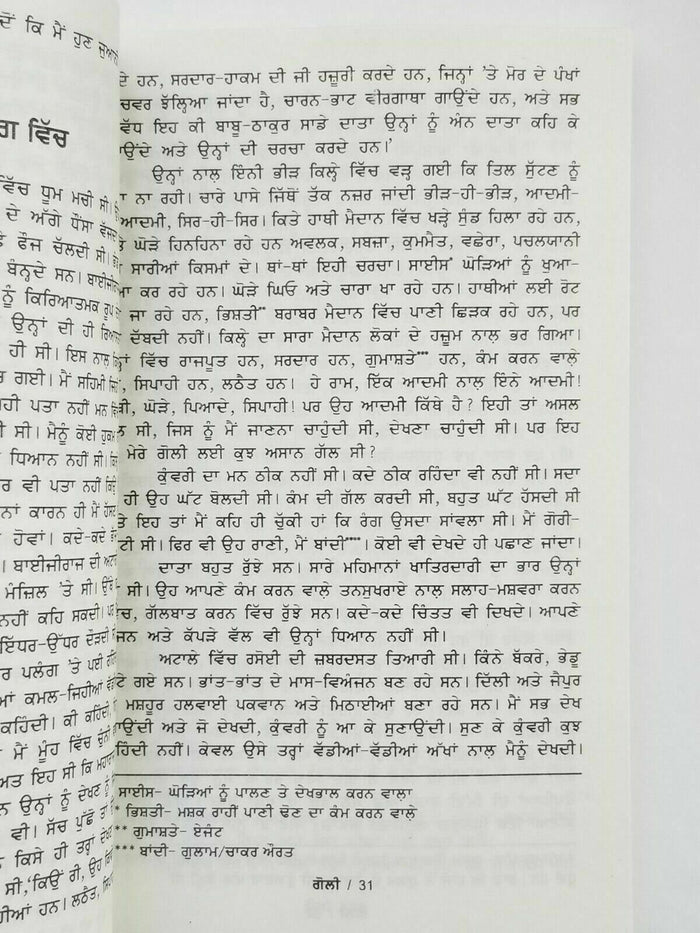 ਦੋਂ ਕਿ ਮੈਂ ਹੁਣ ਜੁਆਨੀ
ਗ ਵਿੱਚ
ਵਿੱਚ ਧੂਮ ਮਚੀ ਸੀ।
ਦੇ ਅੱਗੇ ਧੌਂਸਾ ਵੱਜਦਾ
ਫੌਜ ਚੱਲਦੀ ਸੀ।
ਬੰਨ੍ਹਦੇ ਸਨ। ਬਾਈਜੀ
ਨੂੰ ਕਿਰਿਆਤਮਕ ਰੂਪ
ਉਨ੍ਹਾਂ ਦੀ ਹੀ
ਹੀ ਸੀ। ਇਸ ਨਾਲ
ਰ ਗਈ। ਮੈਂ ਸਹਿਮੀ
ਹੀ ਪਤਾ ਨਹੀਂ ਮਨ
ਸੀ। ਮੈਨੂੰ ਕੋਈ ਹੁਕਮ
ਧਿਆਨ ਨਹੀਂ ਸੀ।
ਰ ਵੀ ਪਤਾ ਨਹੀਂ
ਨਾਂ ਕਾਰਨ ਹੀ ਮੈਂ
ਹੋਵਾਂ। ਕਦੇ-ਕਦੇ
। ਬਾਈਜੀਰਾਜ ਦੀ
ਮੰਜ਼ਿਲ 'ਤੇ ਸੀ।
ਨਹੀਂ ਕਹਿ ਸਕਦੀ। ਪਰ
ਇੱਧਰ-ਉੱਧਰ ਦੌੜਦੀ
ਰ ਪਲੰਗ 'ਤੇ ਪਈ
ਮਾਂ ਕਮਲ-ਜਿਹੀਆਂ
ਕਹਿੰਦੀ। ਕੀ ਕਹਿੰਦੀ
ਮੈਂ ਮੂੰਹ ਵਿੱਚ ਚੁੰਨੀ
ਅਤ ਇਹ ਸੀ ਕਿ
ਨ ਉਨ੍ਹਾਂ ਨੂੰ ਦੇਖਣ ਨੂੰ
ਵੀ। ਸੱਚ ਪੁੱਛੋ ਤਾਂ
ਨ ਕਿਸੇ ਹੀ ਤਰ੍ਹਾਂ ਦੇਖਣ
ਸੀ,'ਕਿਉਂ ਗੀ, ਉਹ
ਹੀਆਂ ਹਨ। ਲਠੈਤ,
ਦੇ ਹਨ, ਸਰਦਾਰ-ਹਾਕਮ ਦੀ ਜੀ ਹਜ਼ੂਰੀ ਕਰਦੇ ਹਨ, ਜਿਨ੍ਹਾਂ 'ਤੇ ਮੋਰ ਦੇ ਪੰਖਾਂ
ਚਵਰ ਝੱਲ੍ਹਿਆ ਜਾਂਦਾ ਹੈ, ਚਾਰਨ-ਭਾਟ ਵੀਰਗਾਥਾ ਗਾਉਂਦੇ ਹਨ, ਅਤੇ ਸਭ
ਵੱਧ ਇਹ ਕੀ ਬਾਬੂ-ਠਾਕੁਰ ਸਾਡੇ ਦਾਤਾ ਉਨ੍ਹਾਂ ਨੂੰ ਅੰਨ ਦਾਤਾ ਕਹਿ ਕੇ
ਾਉਂਦੇ ਅਤੇ ਉਨ੍ਹਾਂ ਦੀ ਚਰਚਾ ਕਰਦੇ ਹਨ।'
ਉਨ੍ਹਾਂ ਨਾਲ ਇੰਨੀ ਭੀੜ ਕਿਲ੍ਹੇ ਵਿੱਚ ਵੜ੍ਹ ਗਈ ਕਿ ਤਿਲ ਸੁੱਟਣ ਨੂੰ
ਾ ਨਾ ਰਹੀ। ਚਾਰੇ ਪਾਸੇ ਜਿੱਥੋਂ ਤੱਕ ਨਜ਼ਰ ਜਾਂਦੀ ਭੀੜ-ਹੀ-ਭੀੜ, ਆਦਮੀ-
ਆਦਮੀ, ਸਿਰ-ਹੀ-ਸਿਰ। ਕਿਤੇ ਹਾਥੀ ਮੈਦਾਨ ਵਿੱਚ ਖੜ੍ਹੇ ਸੁੰਡ ਹਿਲਾ ਰਹੇ ਹਨ,
ਤੇ ਘੋੜੇ ਹਿਨਹਿਨਾ ਰਹੇ ਹਨ ਅਵਲਕ, ਸਬਜ਼ਾ, ਕੁਮਮੈਤ, ਵਛੇਰਾ, ਪਚਲਯਾਨੀ
ਸਾਰੀਆਂ ਕਿਸਮਾਂ ਦੇ। ਥਾਂ-ਥਾਂ ਇਹੀ ਚਰਚਾ। ਸਾਈਸ* ਘੋੜਿਆਂ ਨੂੰ ਖੁਆ-
ਆ ਕਰ ਰਹੇ ਹਨ। ਘੋੜੇ ਘਿਓ ਅਤੇ ਚਾਰਾ ਖਾ ਰਹੇ ਹਨ। ਹਾਥੀਆਂ ਲਈ ਰੋਟ
ਜਾ ਰਹੇ ਹਨ, ਭਿਸ਼ਤੀ** ਬਰਾਬਰ ਮੈਦਾਨ ਵਿੱਚ ਪਾਣੀ ਛਿੜਕ ਰਹੇ ਹਨ, ਪਰ
ਦੱਬਦੀ ਨਹੀਂ। ਕਿਲ੍ਹੇ ਦਾ ਸਾਰਾ ਮੈਦਾਨ ਲੋਕਾਂ ਦੇ ਹਜ਼ੂਮ ਨਾਲ ਭਰ ਗਿਆ।
ਾਂ ਵਿੱਚ ਰਾਜਪੂਤ ਹਨ, ਸਰਦਾਰ ਹਨ, ਗੁਮਾਸ਼ਤੇ*** ਹਨ, ਕੰਮ ਕਰਨ ਵਾਲ਼ੇ
, ਸਿਪਾਹੀ ਹਨ, ਲਠੈਤ ਹਨ। ਹੇ ਰਾਮ, ਇੱਕ ਆਦਮੀ ਨਾਲ ਇੰਨੇ ਆਦਮੀ!
ੀ, ਘੋੜੇ, ਪਿਆਦੇ, ਸਿਪਾਹੀ! ਪਰ ਉਹ ਆਦਮੀ ਕਿੱਥੇ ਹੈ? ਇਹੀ ਤਾਂ ਅਸਲ
ਲ ਸੀ, ਜਿਸ ਨੂੰ ਮੈਂ ਜਾਣਨਾ ਚਾਹੁੰਦੀ ਸੀ, ਦੇਖਣਾ ਚਾਹੁੰਦੀ ਸੀ। ਪਰ ਇਹ
ਮੇਰੇ ਗੋਲੀ ਲਈ ਕੁਝ ਅਸਾਨ ਗੱਲ ਸੀ?
ਕੁੰਵਰੀ ਦਾ ਮਨ ਠੀਕ ਨਹੀਂ ਸੀ। ਕਦੇ ਠੀਕ ਰਹਿੰਦਾ ਵੀ ਨਹੀਂ ਸੀ। ਸਦਾ
ਹੀ ਉਹ ਘੱਟ ਬੋਲਦੀ ਸੀ। ਕੰਮ ਦੀ ਗੱਲ ਕਰਦੀ ਸੀ, ਬਹੁਤ ਘੱਟ ਹੱਸਦੀ ਸੀ
ਤੇ ਇਹ ਤਾਂ ਮੈਂ ਕਹਿ ਹੀ ਚੁੱਕੀ ਹਾਂ ਕਿ ਰੰਗ ਉਸਦਾ ਸਾਂਵਲਾ ਸੀ। ਮੈਂ ਗੋਰੀ-
ਟੀ ਸੀ। ਫਿਰ ਵੀ ਉਹ ਰਾਣੀ, ਮੈਂ ਬਾਂਦੀ****। ਕੋਈ ਵੀ ਦੇਖਦੇ ਹੀ ਪਛਾਣ ਜਾਂਦਾ।
ਦਾਤਾ ਬਹੁਤ ਰੁੱਝੇ ਸਨ। ਸਾਰੇ ਮਹਿਮਾਨਾਂ ਖਾਤਿਰਦਾਰੀ ਦਾ ਭਾਰ ਉਨ੍ਹਾਂ
ਸੀ। ਉਹ ਆਪਣੇ ਕੰਮ ਕਰਨ ਵਾਲੇ ਤਨਸੁਖਰਾਏ ਨਾਲ ਸਲਾਹ-ਮਸ਼ਵਰਾ ਕਰਨ
ੱਚ, ਗੱਲਬਾਤ ਕਰਨ ਵਿੱਚ ਰੁੱਝੇ ਸਨ। ਕਦੇ-ਕਦੇ ਚਿੰਤਤ ਵੀ ਦਿਖਦੇ। ਆਪਣੇ
ਜਨ ਅਤੇ ਕੱਪੜੇ ਵੱਲ ਵੀ ਉਨ੍ਹਾਂ ਧਿਆਨ ਨਹੀਂ ਸੀ।
ਅਟਾਲੇ ਵਿੱਚ ਰਸੋਈ ਦੀ ਜ਼ਬਰਦਸਤ ਤਿਆਰੀ ਸੀ। ਕਿੰਨੇ ਬੱਕਰੇ, ਭੇਡੂ
ਟੇ ਗਏ ਸਨ। ਭਾਂਤ-ਭਾਂਤ ਦੇ ਮਾਸ-ਵਿਅੰਜਨ ਬਣ ਰਹੇ ਸਨ। ਦਿੱਲੀ ਅਤੇ ਜੈਪੁਰ
ਮਸ਼ਹੂਰ ਹਲਵਾਈ ਪਕਵਾਨ ਅਤੇ ਮਿਠਾਈਆਂ ਬਣਾ ਰਹੇ ਸਨ। ਮੈਂ ਸਭ ਦੇਖ
ਾਉਂਦੀ ਅਤੇ ਜੋ ਦੇਖਦੀ, ਕੁੰਵਰੀ ਨੂੰ ਆ ਕੇ ਸੁਣਾਉਂਦੀ। ਸੁਣ ਕੇ ਕੁੰਵਰੀ ਕੁਝ
ਹਿੰਦੀ ਨਹੀਂ। ਕੇਵਲ ਉਸੇ ਤਰ੍ਹਾਂ ਵੱਡੀਆਂ-ਵੱਡੀਆਂ ਅੱਖਾਂ ਨਾਲ ਮੈਨੂੰ ਦੇਖਦੀ।
ਸਾਈਸ- ਘੋੜਿਆਂ ਨੂੰ ਪਾਲਣ ਤੇ ਦੇਖਭਾਲ ਕਰਨ ਵਾਲ਼ਾ
* ਭਿਸ਼ਤੀ- ਮਸ਼ਕ ਰਾਹੀਂ ਪਾਣੀ ਢੋਣ ਦਾ ਕੰਮ ਕਰਨ ਵਾਲ਼ੇ
** ਗੁਮਾਸ਼ਤੇ- ਏਜੰਟ
*** ਬਾਂਦੀ- ਗੁਲਾਮ/ਚਾਕਰ ਔਰਤ
ਗੋਲੀ / 31